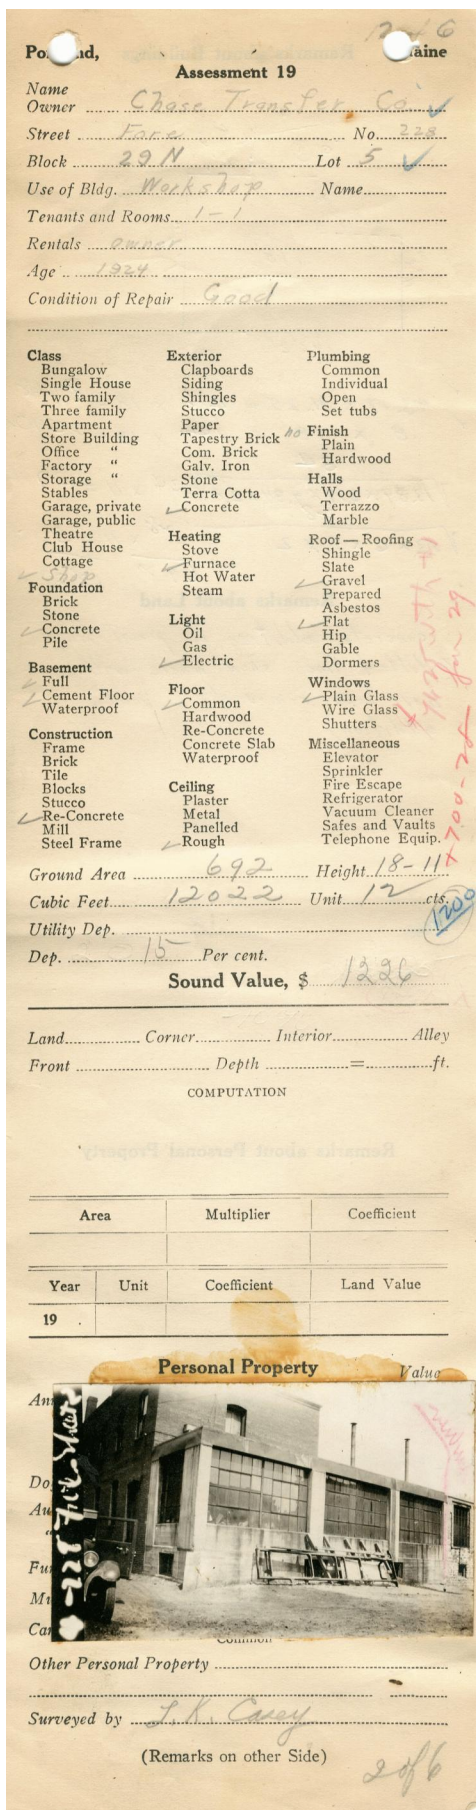 Po nd, aine
Assessment 19
Name
Owner Chase Transfer Co
Street Fore No. 228
Block 29 N Lot 5
Use of Bldg. Workshop Name
Tenants and Rooms 1-1
Rentals owner
Age 1924
Condition of Repair Good
Class
Bungalow
Single House
Two family
Three family
Apartment
Store Building
Office "
Factory "
Storage "
Stables
Garage, private
Garage, public
Theatre
Club House
Cottage
Shop
Foundation
Brick
Stone
Concrete
Pile
Basement
Full
Cement Floor
Waterproof
Construction
Frame
Brick
Tile
Blocks
Stucco
Re-Concrete
Mill
Steel Frame
Exterior
Clapboards
Siding
Shingles
Stucco
Paper
Tapestry Brick
Com. Brick
Galv. Iron
Stone
Terra Cotta
Concrete
Heating
Stove
Furnace
Hot Water
Steam
Light
Oil
Gas
Electric
Floor
Common
Hardwood
Re-Concrete
Concrete Slab
Waterproof
Ceiling
Plaster
Metal
Panelled
Rough
Plumbing
Common
Individual
Open
Set tubs
no Finish
Plain
Hardwood
Halls
Wood
Terrazzo
Marble
Roof — Roofing
Shingle
Slate
Gravel
Prepared
Asbestos
Flat
Hip
Gable
Dormers
Windows
Plain Glass
Wire Glass
Shutters
Miscellaneous
Elevator
Sprinkler
Fire Escape
Refrigerator
Vacuum Cleaner
Safes and Vaults
Telephone Equip.
Ground Area 692 Height 18-11
Cubic Feet 12022 Unit 12 cts.
1200
Utility Dep.
Dep. 15 Per cent.
Sound Value, $ 1226
Land Corner Interior Alley
Front Depth = ft.
COMPUTATION
Area Multiplier Coefficient
Year Unit Coefficient Land Value
19
Personal Property Value
Common
Other Personal Property
Surveyed by L. K. Casey
(Remarks on other Side)
2 of 6